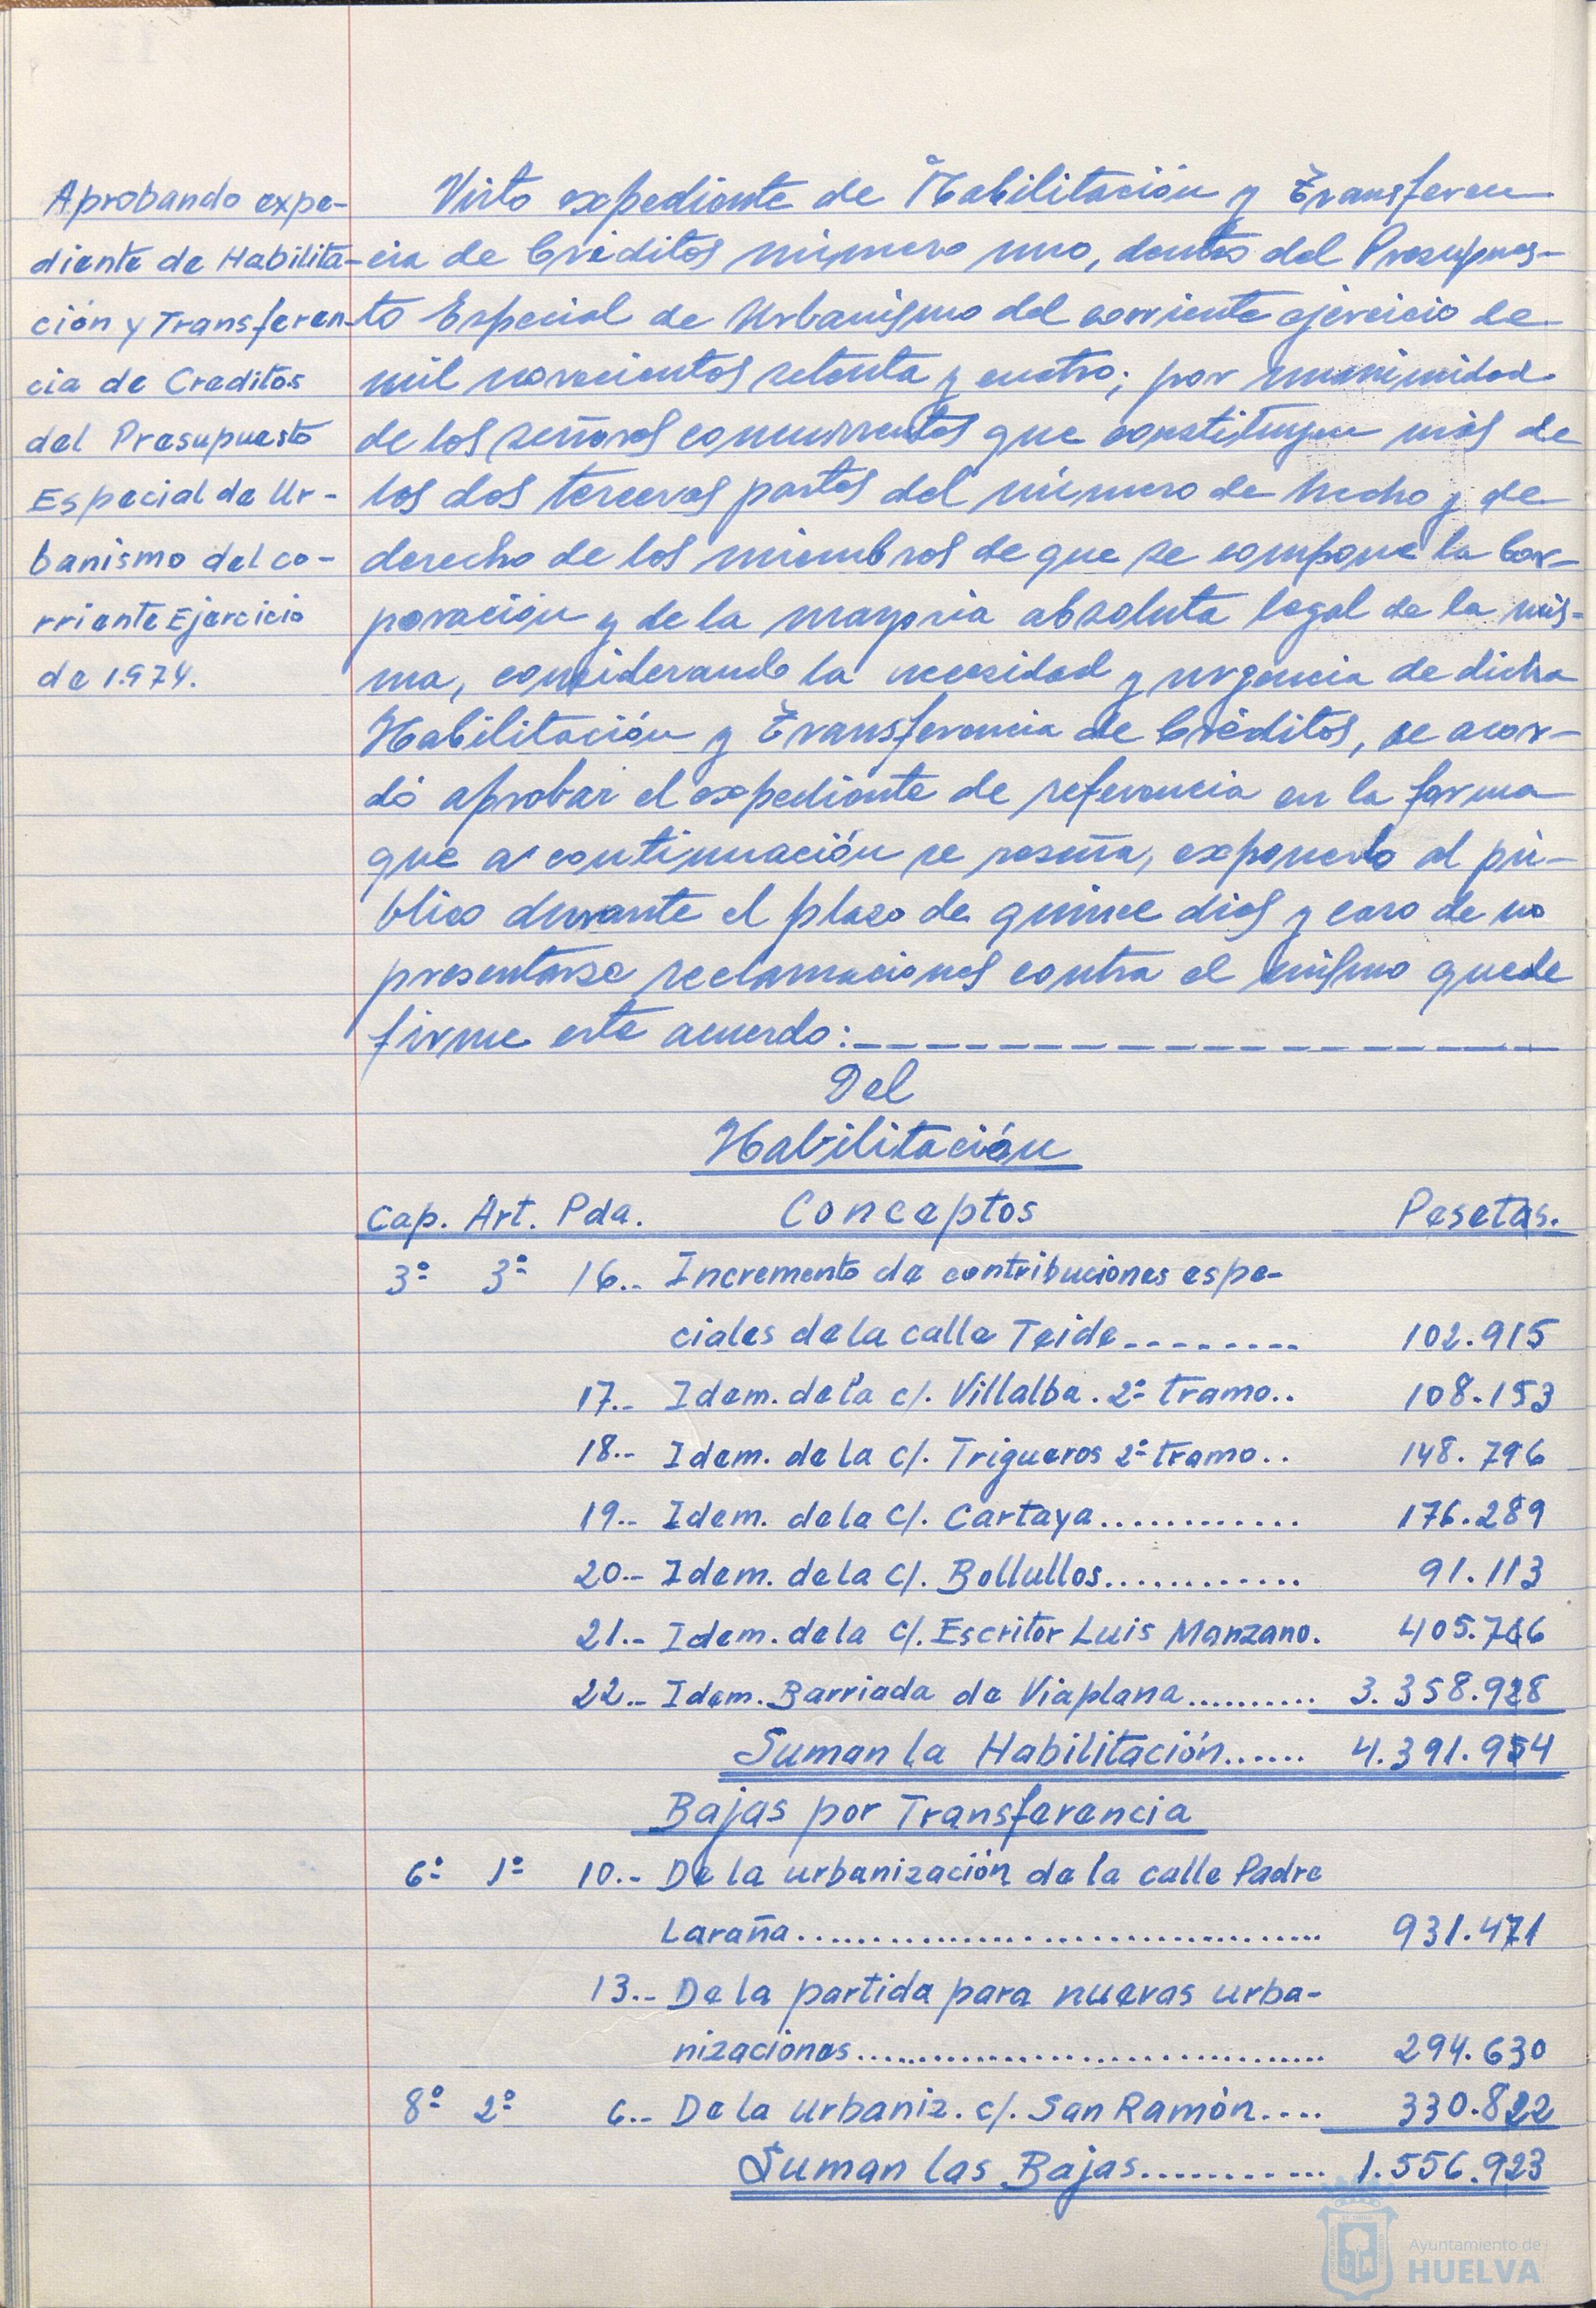 Aprobando expe-
diente de Habilita-
ción y Transferen-
cia de Creditos
del Presupuesto
Especial de Ur-
banismo del co-
rriente Ejercicio
de 1.974.
Visto expediente de Habilitación y Transferen
cia de Créditos número uno, dentro del Presupues-
to Especial de Urbanismo del corriente ejercicio de
mil novecientos setenta y cuatro; por unanimidad
de los señores concurrentes que constituyen más de
las dos terceras partes del número de hecho y de
derecho de los miembros de que se compone la Cor-
poración y de la mayoria absoluta legal de la mis-
ma, considerando la necesidad y urgencia de dicha
Habilitación y Transferencia de Créditos, se acor-
dó aprobar el expediente de referencia en la forma
que a continuación se reseña, exponerlo al pú-
blico durante el plazo de quince dias y caso de no
presentarse reclamaciones contra el mismo quede
firme este acuerdo:
Del
Habilitación
Cap. Art. Pda. Conceptos Pesetas.
3º 3º 16.- Incremento de contribuciones espe-
ciales de la calle Teide-------- 102.915
17.- Idem. de la c/. Villalba. 2º tramo.. 108.153
18.- Idem. de la c/. Trigueros 2º tramo.. 148.796
19.- Idem. de la c/. Cartaya............ 176.289
20.- Idem. de la c/. Bollullos............ 91.113
21.- Idem. de la c/. Escritor Luis Manzano. 405.766
22.- Idem. Barriada de Viaplana.......... 3.358.928
Suman la Habilitación...... 4.391.954
Bajas por Transferencia
6º 1º 10.- De la urbanización de la calle Padre
Laraña.................................. 931.471
13.- De la partida para nuevas urba-
nizaciones............................... 294.630
8º 2º 6.- De la urbaniz. c/. San Ramón.... 330.822
Suman las Bajas............ 1.556.923
Ayuntamiento de
HUELVA